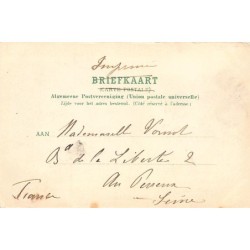 Imprimé
BRIEFKAART
(CARTE POSTALE)
Algemeene Postvereeniging (Union postale universelle)
Zijde voor het adres bestemd. (Côté réservé à l'adresse.)
AAN Mademoiselle
Bd de la Liberté 2
Au
France Seine